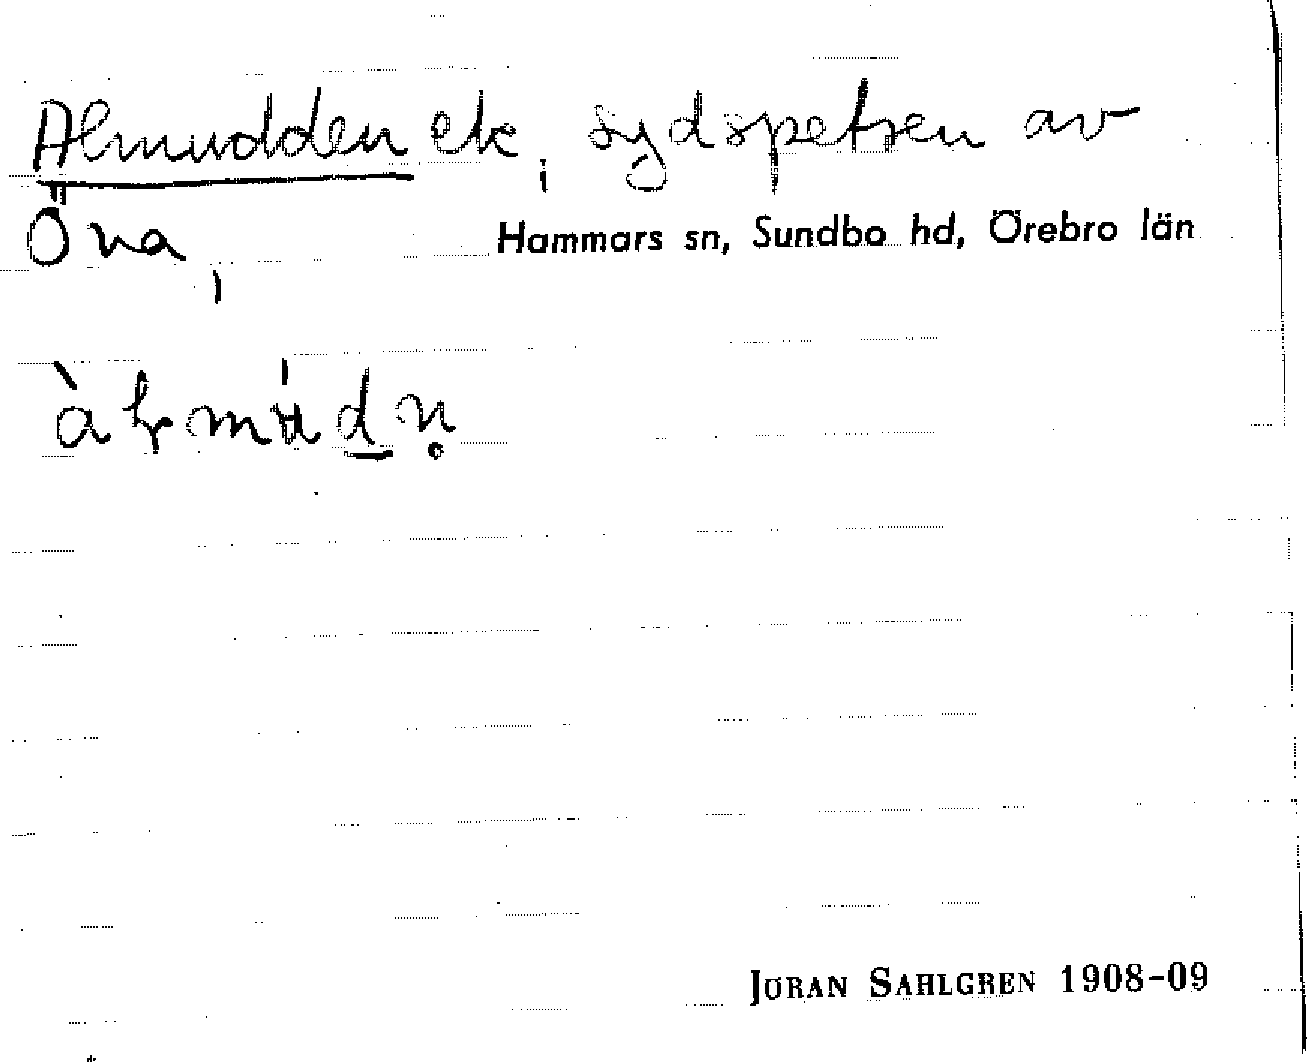 Almudden ek, sydspetsen av
Öna, Hammars sn, Sundbo hd, Örebro län
JÖRAN SAHLGREN 1908-09